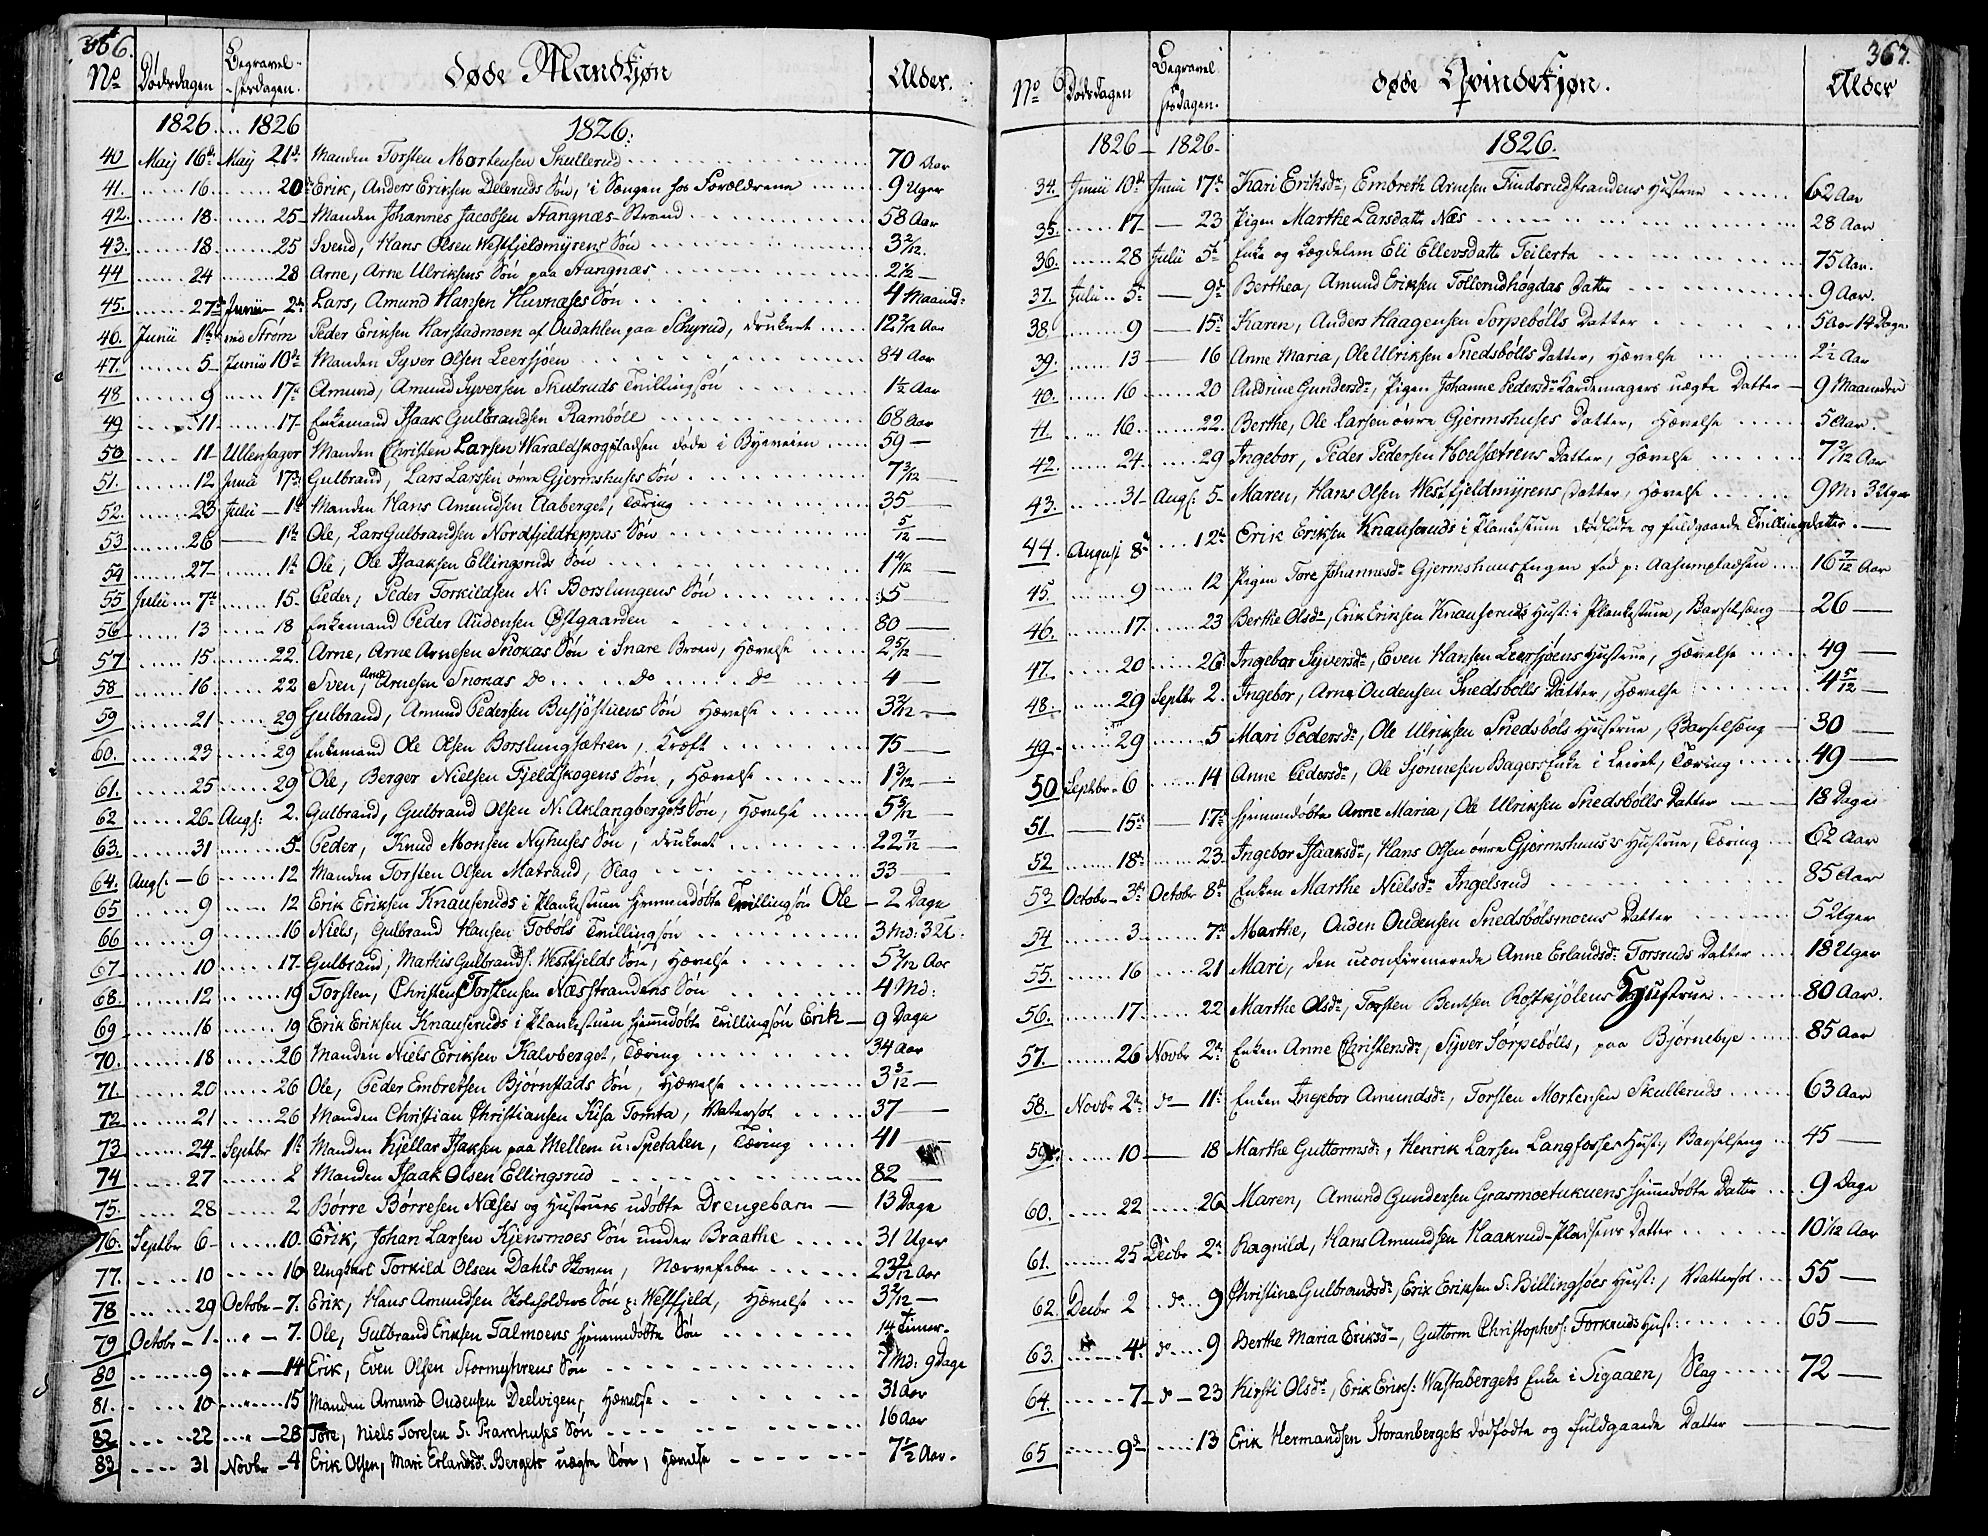 366.
No Dødsdagen Begravel-sesdagen. døde Mandkjøn Alder.
1826 .... 1826 1826:
40 Maij 16de Maij 21de Manden Torsten Mortensen Skullerud 70 Aar
41. 16. 20de Erik, Anders Eriksen Deleruds Søn, i Sængen hos Forældrene 9 Uger
42. 18. 25 Manden Johannes Jacobsen Stangnæs-Strand 58 Aar
43. 18 25 Svend, Hans Olsen Westfjeldmyrens Søn 3 2/12
44 24 28 Arne, Arne Ulriksens Søn paa Stangnæs 2½
45. 27de Junii 2den Lars, Amund Hansen Huvnæses Søn 4 Maand:
46. Junii 1ste ved Strøm Peder Eriksen Harstadmoen af Oudahlen paa Schyrud, druknet 12 2/12 Aar
47. 5 Junii 10de Manden Syver Olsen Leersjøen 84 Aar
48 9 17de Amund, Amund Syversen Skulruds Tvillingsøn 1½ Aar
49 11 17 Enkemand Isaak Gulbrandsen Rambøll 68 Aar
50 11 Ullensager Manden Christen Larsen Waraldskogpladsen døde i Byeveien 59
51. 12 Junii 17de Gulbrand, Lars Larssen øvre Gjermshuses Søn 7 3/12
52. 23 Julii 1ste Manden Hans Amundsen Aaberget, Tæring 35
53 26 1ste Ole, Lars Gulbrandsen Nordfjeldteppas Søn 5/12
54 27 1ste Ole, Ole Isaaksen Ellingsruds Søn 1 4/12
55 Julii 7de 15 Peder, Peder Torkildsen N: Borslungens Søn 5
56 13 18 Enkemand Peder Audensen Østgaarden 80
57 15. 22. Arne, Arne Arnesen Snokas Søn i Snare Broen, Hævelse 2 5/12
58 16 22 Sven, Arne Arnesen Snokas do do do 4
59 21 29 Gulbrand, Amund Pedersen Busjøstuens Søn Hævelse 3 2/12
60. 23 29 Enkemand Ole Olsen Borslungsætren, Kræft 75
61. 25 29 Ole, Berger Nielsen Fjeldskogens Søn, Hævelse 1 3/12
62 26 Augs: 2. Gulbrand, Gulbrand Olsen N: Aklangbergets Søn, Hævelse 5 3/12
63. 31 5 Peder, Knud Monsen Nyhuses Søn, druknet 22 7/12
64. Augs: 6 12 Manden Torsten Olsen Matrand, Slag 33
65 9 12 Erik Eriksen Knauseruds i Plankestuen hjemmedøbte Tvillingsøn Ole 2 Dage
66 9 16 Niels, Gulbrand Hansen Tobøls Tvillingsøn 3 Md: 3 U:
67 10 17. Gulbrand, Mathis Gulbrands: Westfjelds Søn, Hævelse 5 2/12 Aar
68. 12 19 Torsten, Christen Torstensen Næsstrandens Søn 4 Md:
69 16 19 Erik Eriksen Knauseruds i Plankestuen hjemmedøbte Tvillingsøn Erik 9 Dage
70. 18 26 Manden Niels Eriksen Kalvberget, Tæring 34 Aar
71. 20 26 Ole, Peder Embretsen Bjørnstads Søn, Hævelse 3 3/12
72 21 26 Manden Christian Christiansen Kisa Tomta, Vatersot 37
73 24. Septbr 1ste Manden Kjellar Isaksen paa Mellem u: Spetalen, Tæring 41
74 27 2 Manden Isaak Olsen Ellingsrud 82
75. 28 2 Børre Børresen Næses og Hustrues udøbte Drengebarn 13 Dage
76. Septbr 6 10. Erik, Johan Larsen Kjensmoes Søn under Braathe 31 Uger
77. 10 16 Ungkarl Torkild Olsen Dahls Skoven, Nervefeber 23 2/12 Aar
78 29 Octobr 7. Erik, Hans Amundsen Skoleholders Søn p: Westfjeld, Hævelse 3 2/12
79 Octobr 1. 7. Ole, Gulbrand Eriksen Talmoens hjemmedøbte Søn 14 Timer.
80 9 14 Erik, Even Olsen Stormyhrens Søn 7 Md: 9 Dage
81. 10 15 Manden Amund Oudensen Deelvigen, Hævelse 31 Aar
82 22 28 Tore, Niels Toresen S: Pramhuses Søn 16 Aar
83 31 Novbr 4 Erik Olsen, Mari Erlandsd: Bergets uægte Søn, Hævelse 7½ Aar.
367.
No Dødsdagen Begravelsesdagen. døde Qvindekjøn. Alder
1826 1826 1826.
34. Junii 10de Junii 17de Kari Eriksdr, Embreth Arnesen Findsrudstrandens Hustrue 62 Aar
35. 17 23 Pigen Marthe Larsdatt Næs 28 Aar
36. 28 Julii 5te Enke og Lægdelem Eli Ellevsdatt Teilerta 75 Aar.
37. Julii 5te 9de Berthea, Amund Eriksen Tollerudhøgdas Datter 9 Aar.
38. 9 15de Karen, Anders Haagensen Sorpebølls Datter 5 Aar 14 Dage
39. 13 16 Anne Maria, Ole Ulriksen Snedsbølls Datter, Hævelse 2½ Aar
40. 16 20 Andrine Gundersdr, Pigen Johanne Pedersdr Kardemagers uægte Datter 9 Maaneder
41 16. 22. Berthe, Ole Larsen øvre Gjermshuses Datter, Hævelse 5 Aar.
42. 24. 29 Ingebor, Peder Pedersen Hoelsætrens Datter, Hævelse 7 2/12 Aar
43. 31 Augs: 5 Maren, Hans Olsen Westfjeldmyrens Datter, Hævelse 9 M: 3 Uger
44. August 8de 12te Erik Eriksen Knauseruds i Plankestuen dødfødte og fuldgaaende Tvillingdatter.
45. 9 12 Pigen Tore Johannesdr Gjermshuus Engen fød p: Aasumpladsen 16 7/12 Aar
46. 17. 23 Berthe Olsdr, Erik Eriksen Knauseruds Hust: i Plankestuen, Barselseng 26
47. 20 26 Ingebor Syversdr, Even Hansen Leersjøens Hustrue, Hævelse 49
48. 29 Septbr 2. Ingebor, Arne Oudensen Snedsbølls Datter, Hævelse 4 5/12
49. 29 5 Mari Pedersdr, Ole Ulriksen Snedsbøls Hustrue, Barselsæng 30
50 Septbr 6 14 Anne Pedersdr, Ole Sjønnesen Bagers Enke i Leiret, Tæring 49
51. 15de 17de hjemmedøbte Anne Maria, Ole Ulriksen Snedsbølls Datter 18 Dage
52 18de 23. Ingebor Isaaksdr, Hans Olsen øvre Gjermshuus's Hustrue, Tæring 62 Aar
53 Octobr 3de Octobr 8de Enken Marthe Nielsdr Ingelsrud 85 Aar
54 3 7de Marthe, Ouden Oudensen Snedsbølsmoens Datter 5 Uger
55. 16 21 Mari, den uconfirmerede Anne Erlandsdr Torsruds Datter 18 Uger
56. 17. 22 Marthe Olsdr, Torsten Bentsen Rotkjølens Hustrue 80 Aar.
57. 26 Novbr 2den Enken Anne Christensdr, Syver Sorpebølls, paa Bjørnebye 85 Aar
58. Novbr 2den do 11te Enken Ingebor Amundsdr, Torsten Mortensen Skulleruds 63 Aar
59. 10 18 Marthe Guttormsdr, Henrik Larsen Langfosses Hust:, Barselseng 45
60. 22 26 Maren, Amund Gundersen Grasmoetukuens hjemmedøbte Datter 9 Dage
61. 25 Decbr 2den Ragnild, Hans Amundsen Haakrud-Pladsens Datter 10 1/12 Aar
62. Decbr 2 do 9 Christine Gulbrandsdr, Erik Eriksen S: Billingsøes Hust:, Vattersot 55
63. 4de do 9 Berthe Maria Eriksdr, Guttorm Christophers: Forkruds Hust: 65
64. 7 do 23 Kirsti Olsdr, Erik Eriks: Wastabergets Enke i Sigaaen, Slag 72
65 9de 13 Erik Hermandsen Storanbergets dødfødte og fuldgaaede Datter